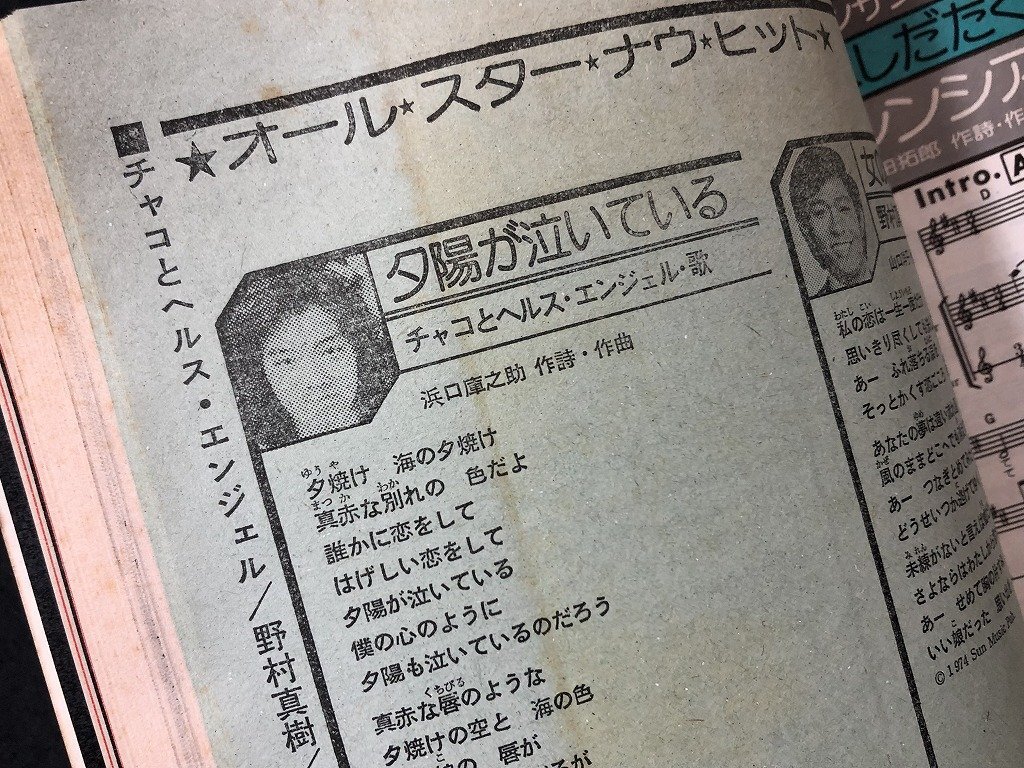 ★オール★スター★ナウ★ヒット★
チャコとヘルス・エンジェル／野村真樹
夕陽が泣いている
チャコとヘルス・エンジェル・歌
浜口庫之助 作詩・作曲
夕焼け 海の夕焼け
真赤な別れの 色だよ
誰かに恋をして
はげしい恋をして
夕陽が泣いている
僕の心のように
夕陽も泣いているのだろう
真赤な唇のような
夕焼けの空と 海の色
唇が
私の恋は一生一
思いきり尽くして
あー ふれ落ち
そっとかくす
あなたの夢は遠い
風のままどこへでも
あー つなぎとめ
どうせいつか
未練がないと言えば
さよならはわたしから
あー せめて胸の
いい娘だった 思い
© 1974 Sun Music Pub
しだたく
ンシア
拓郎 作詩・作
Intro. A
D
G